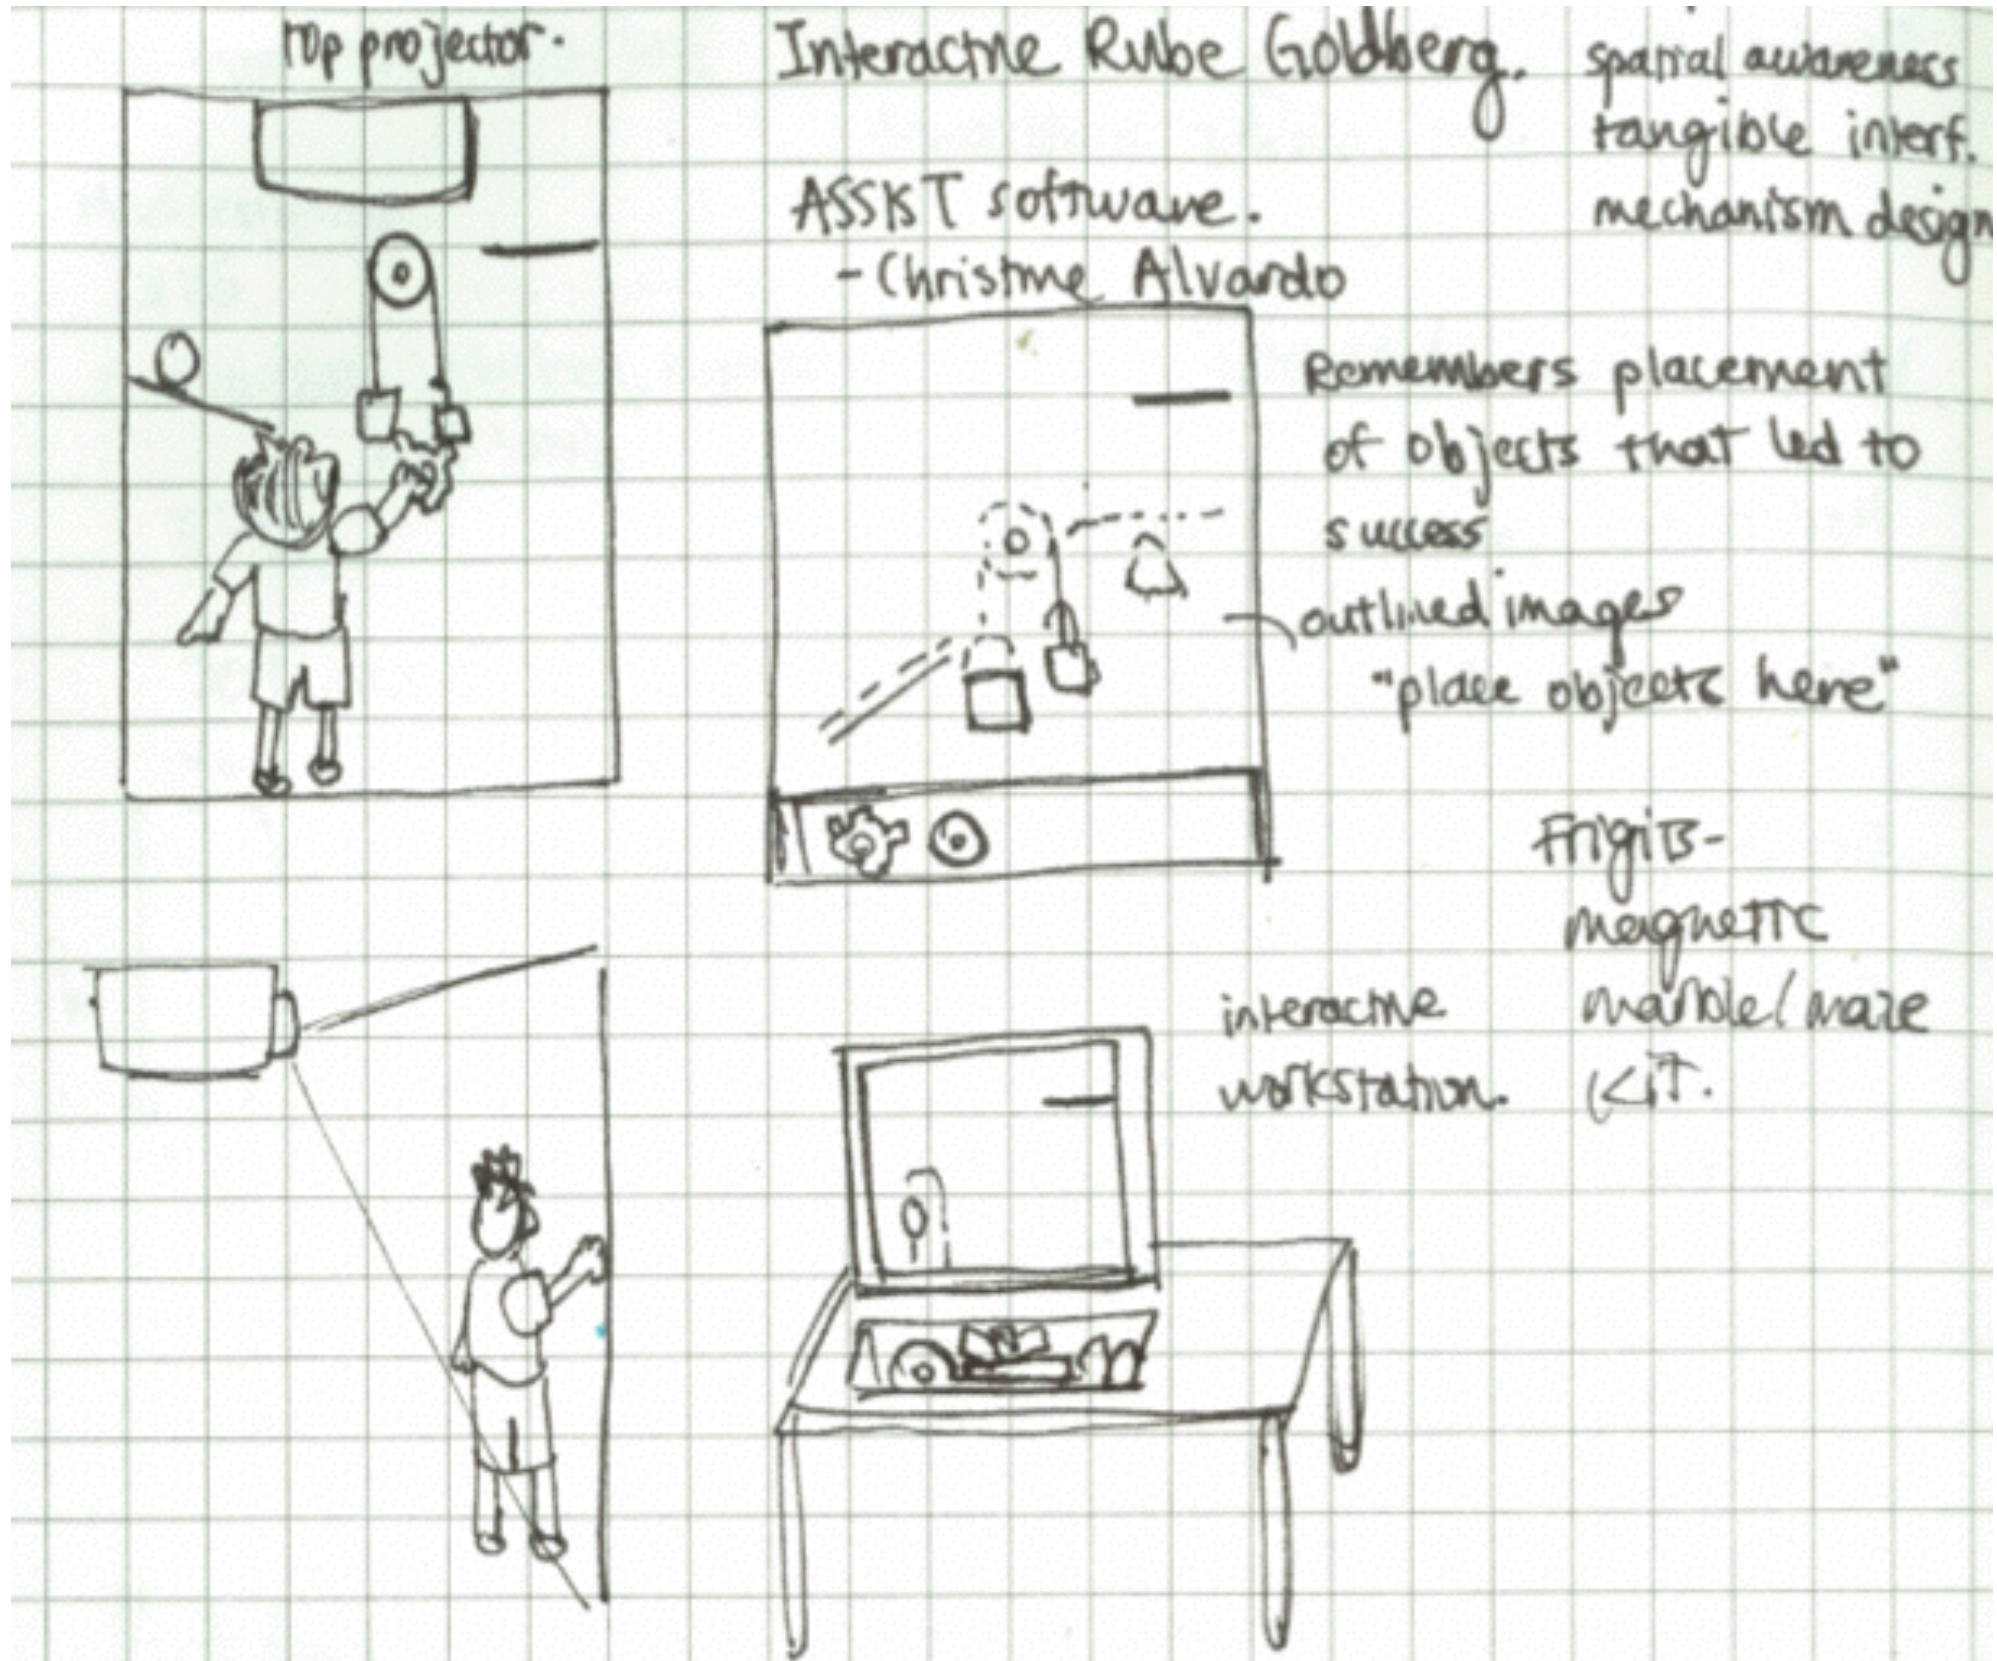 top projector.
Interactive Rube Goldberg.
spatial awareness
tangible interf.
mechanism design
ASSIST software.
- Christine Alvardo
Remembers placement
of objects that led to
success
outlined images
"place objects here"
Frigits-
magnetic
marble/maze
KiT.
interactive
workstation.